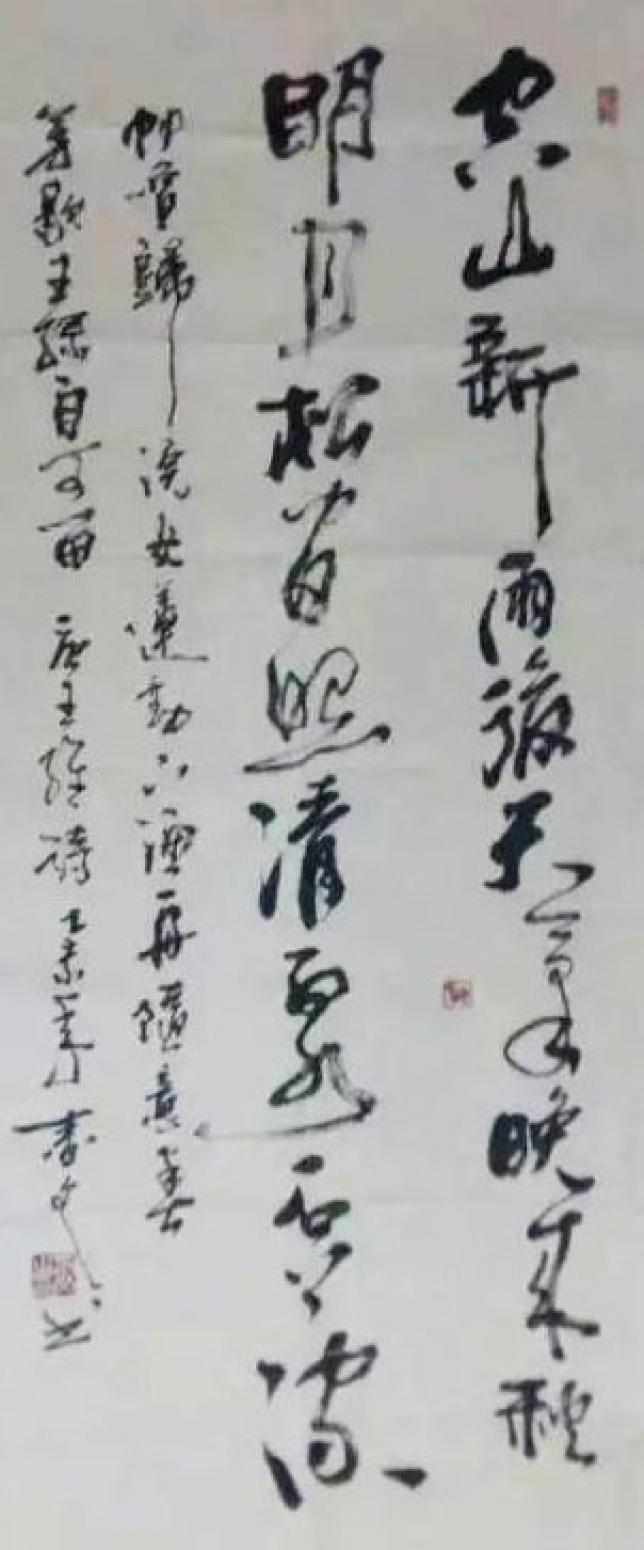 空山新雨後天氣晚來秋
明月松間照清泉石上流
竹喧歸浣女蓮動下漁舟隨意春
芳歇王孫自可留 唐王維詩